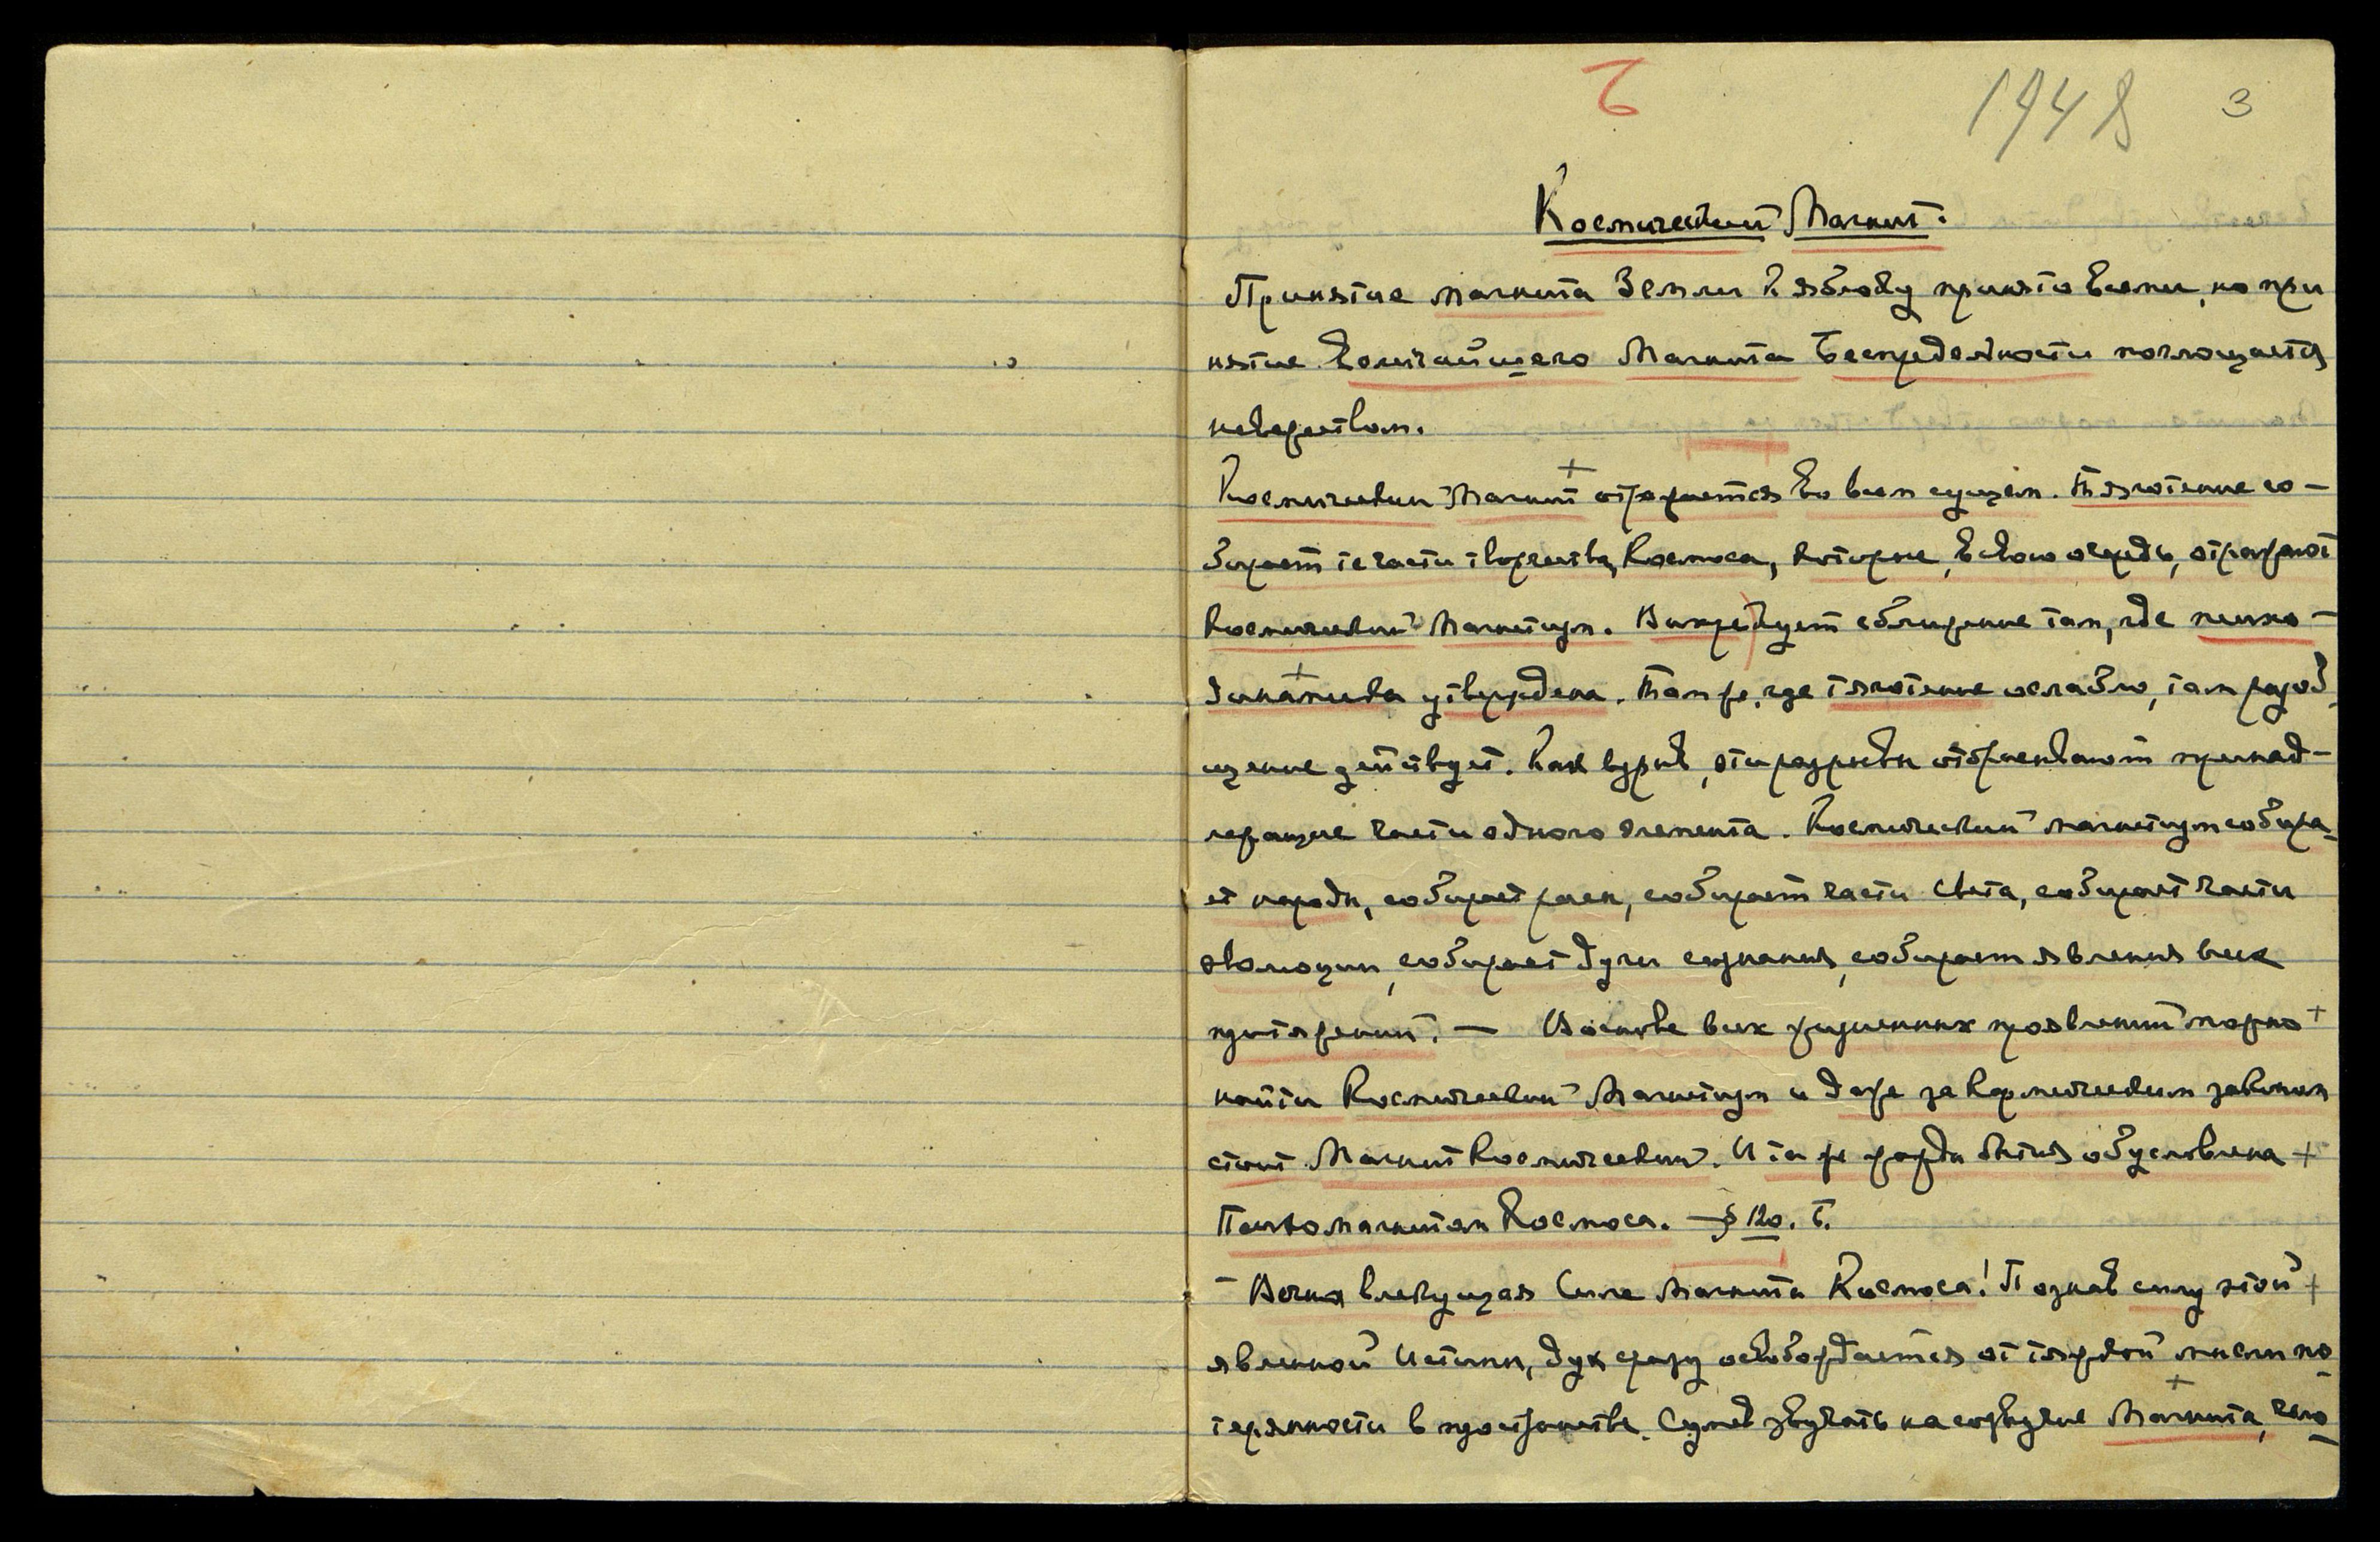 Б
1948 3
Космический Магнит.
Принятие магнита Земли к яблоку принято всеми, но при
нятие величайшего Магнита Беспредельности поглощается
невежеством.
Космический Магнит отражается во всем сущем. Тяготение со-
бирает те части творчества Космоса, которые, в свою очередь, отражают
Космический Магнетизм. Винредует сближение там, где психо-
динамика утверждена. Там же, где тяготение ослабло, там разоб
щение действует. Как взрыв, эти разрывы отбрасывают принад-
лежащие части одного элемента. Космический магнетизм собира-
ет народы, собирает расы, собирает части света, собирает части
эволюции, собирает дуги сознания, собирает явления всех
притяжений. — В основе всех жизненных проявлений можно +
найти Космический Магнетизм и даже за Кармическим законом
стоит Магнит Космический. И та же жажда бытия обусловлена +
Психомагнитом Космоса. — § 120. Б.
- Вечна влекущая Сила Магнита Космоса! Познав силу этой +
явленной Истины, дух сразу освобождается от тяжкой мысли по
терянности в пространстве. Сумев звучать на созвучие Магнита, чело